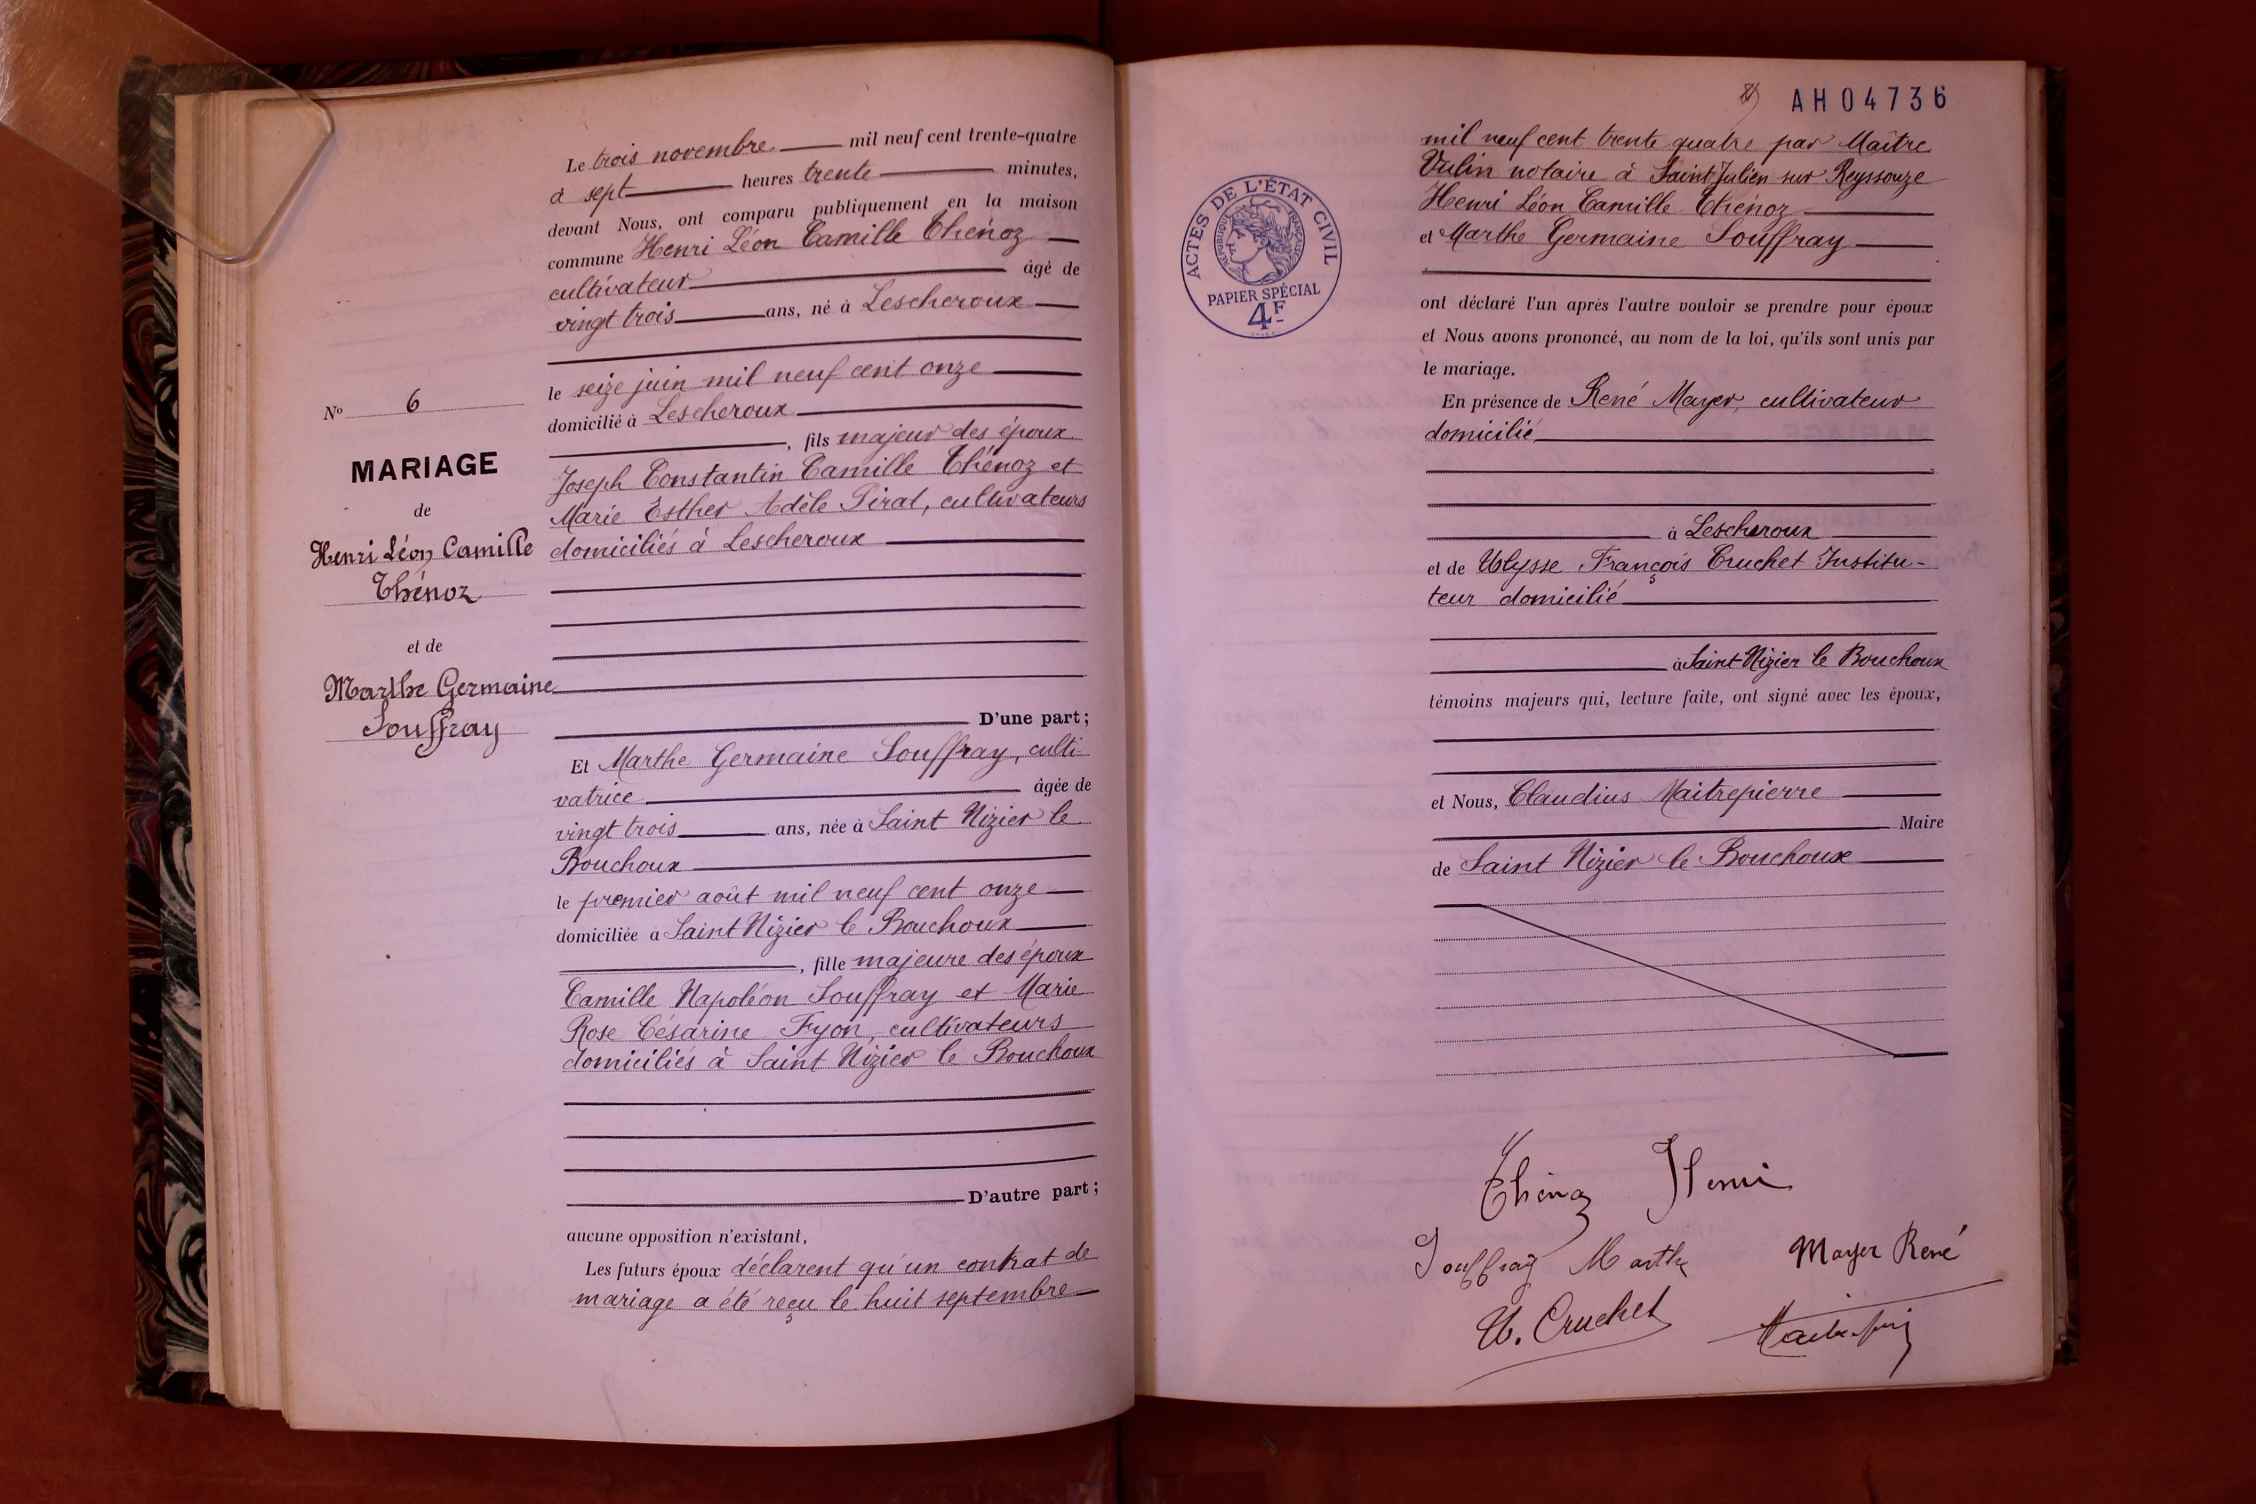 N° 6
MARIAGE
de
Henri Léon Camille
Thénoz
et de
Marthe Germaine
Souffray
Le trois novembre mil neuf cent trente-quatre
à sept heures trente minutes,
devant Nous, ont comparu publiquement en la maison
commune Henri Léon Camille Thénoz
cultivateur âgé de
vingt trois ans, né à Lescheroux
le seize juin mil neuf cent onze
domicilié à Lescheroux
, fils majeur des époux
Joseph Constantin Camille Thénoz et
Marie Esther Adèle Pirat, cultivateurs
domiciliés à Lescheroux
D'une part;
Et Marthe Germaine Souffray, culti-
vatrice âgée de
vingt trois ans, née à Saint Nizier le
Bouchoux
le premier août mil neuf cent onze
domiciliée à Saint Nizier le Bouchoux
, fille majeure des époux
Camille Napoléon Souffray et Marie
Rose Césarine Fyon, cultivateurs
domiciliés à Saint Nizier le Bouchoux
D'autre part;
aucune opposition n'existant,
Les futurs époux déclarent qu'un contrat de
mariage a été reçu le huit septembre
AH04736
ACTES DE L'ÉTAT CIVIL
RÉPUBLIQUE FRANÇAISE
PAPIER SPÉCIAL
4F
mil neuf cent trente quatre par Maître
Vulin notaire à Saint Julien sur Reyssouze
Henri Léon Camille Thénoz
et Marthe Germaine Souffray
ont déclaré l'un après l'autre vouloir se prendre pour époux
et Nous avons prononcé, au nom de la loi, qu'ils sont unis par
le mariage.
En présence de René Mayer, cultivateur
domicilié
à Lescheroux
et de Ulysse François Cruchet Institu-
teur domicilié
à Saint Nizier le Bouchoux
témoins majeurs qui, lecture faite, ont signé avec les époux,
et Nous, Claudius Maitrepierre
Maire
de Saint Nizier le Bouchoux
Thénoz Henri
Souffray Marthe Mayer René
U. Cruchet